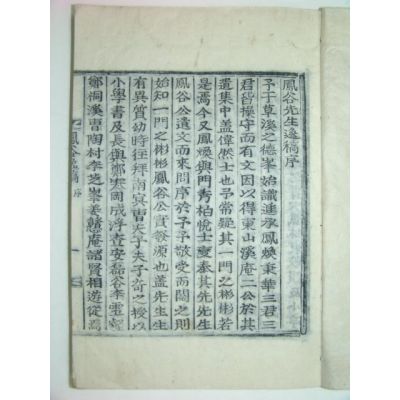 鳳谷先生逸稿序
予于草溪之德峯始識進承鳳煥秉華三君三
君皆操守而有文因以得東山溪庵二公於其
遺集中盖偉然士也予常疑其一門之彬彬若
是焉今又鳳煥與門秀柏悅士燮奉其先先生
鳳谷公遺文而來問序於予予敬受而閱之則
始知一門之彬彬鳳谷公實發源也盖先生生
有異質幼時往拜南冥曺夫子夫子奇之授以
小學書及長與鄭寒岡成浮査安磊谷李雪壑
鄭桐溪曺陶村李芝峯姜戇庵諸賢相遊從焉
鳳谷逸稿 序 一